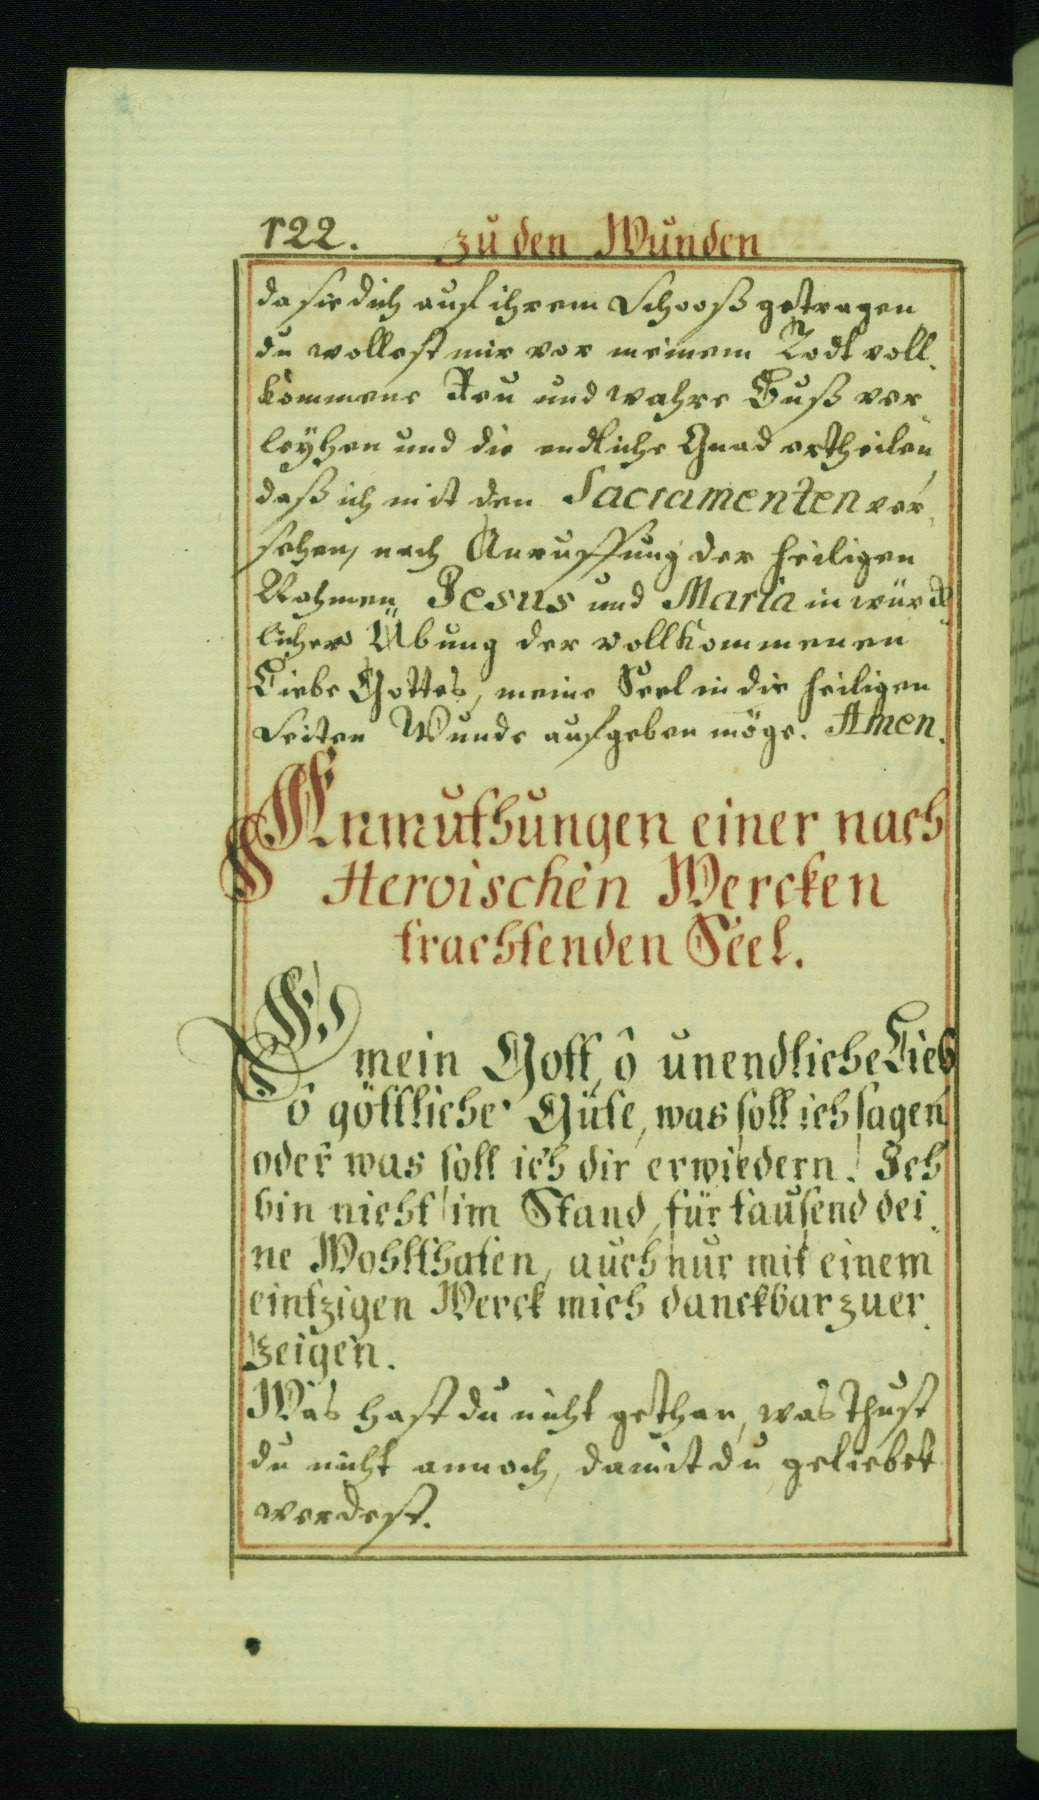 122. zu den Wunden
da sie dich auf ihrem Schooß getragen
du wollest mir vor meinem Todt voll-
kommene Reu und wahre Buß ver-
leÿhen und die endliche Gnad ertheilen,
daß ich mit den Sacramenten ver-
sehen, nach Anruffung der heiligen
Nahmen Jesus und Maria in würck-
licher Übung der vollkommenen
Liebe Gottes, meine Seel in die heiligen
Seiten Wunde aufgeben möge. Amen.
Anmuthungen einer nach
Heroischen Wercken
trachtenden Seel.
O mein Gott, ô unendliche Lieb
ô göttliche Güte, was soll ich sagen
oder was soll ich dir erwiedern. Ich
bin nicht im Stand, für tausend dei-
ne Wohlthaten, auch nur mit einem
eintzigen Werck mich danckbar zu er-
zeigen.
Was hast du nicht gethan, was thust
du nicht annoch, damit du geliebet
werdest.